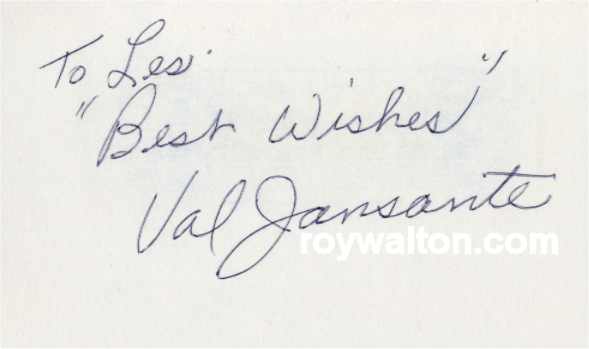 To Les
"Best Wishes"
Val Jansante
roywalton.com